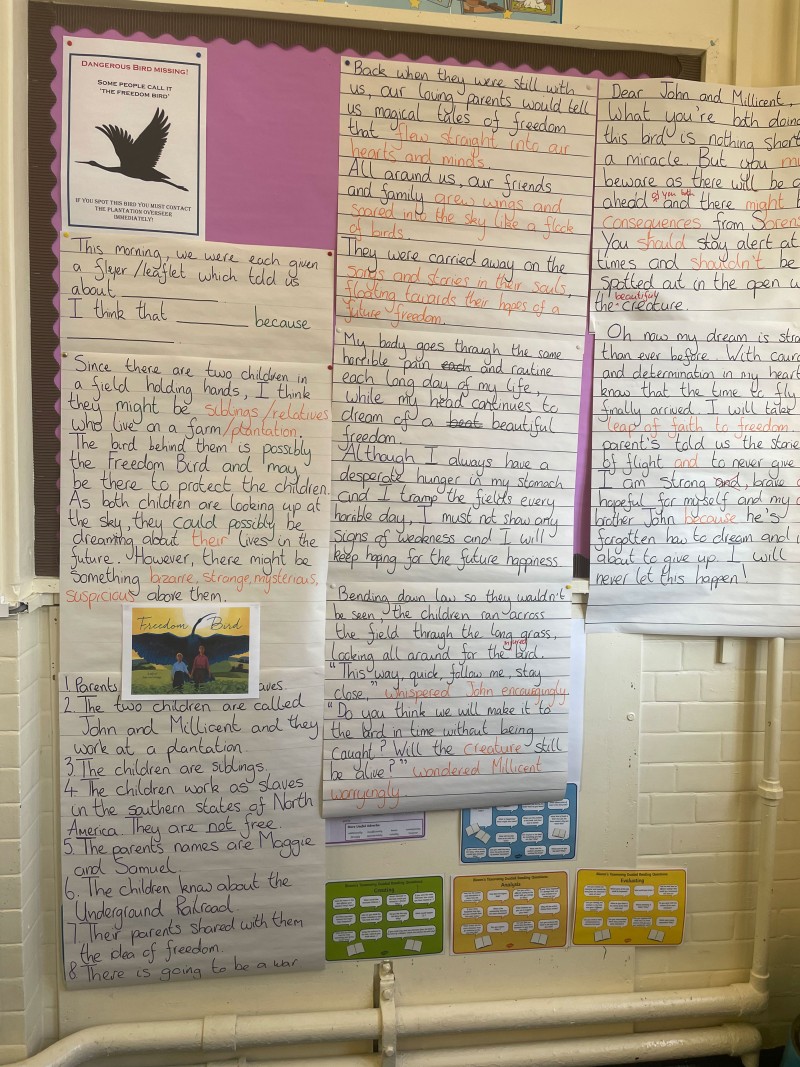 DANGEROUS BIRD MISSING!
SOME PEOPLE CALL IT
'THE FREEDOM BIRD'
IF YOU SPOT THIS BIRD YOU MUST CONTACT
THE PLANTATION OVERSEER
IMMEDIATELY!
This morning, we were each given
a flyer/leaflet which told us
about
I think that because
Since there are two children in
a field holding hands, I think
they might be siblings/relatives
who live on a farm/plantation.
The bird behind them is possibly
the Freedom Bird and may
be there to protect the children.
As both children are looking up at
the sky, they could possibly be
dreaming about their lives in the
future. However, there might be
something bizarre, strange, mysterious,
suspicious above them.
Freedom Bird
1. Parents
2. The two children are called
John and Millicent and they
work at a plantation.
3. The children are siblings.
4. The children work as slaves
in the southern states of North
America. They are not free.
5. The parents names are Maggie
and Samuel.
6. The children know about the
Underground Railroad
7. Their parents shared with them
the idea of freedom.
8. There is going to be a war
Back when they were still with
us, our loving parents would tell
us magical tales of freedom
that flew straight into our
hearts and minds.
All around us, our friends
and family grew wings and
soared into the sky like a flock
of birds.
They were carried away on the
songs and stories in their souls,
floating towards their hopes of a
future freedom.
My body goes through the same
horrible pain each and routine
each long day of my life,
while my head continues to
dream of a beat beautiful
freedom.
Although I always have a
desperate hunger in my stomach
and I tramp the fields every
horrible day, I must not show any
signs of weakness and I will
keep hoping for the future happiness.
Bending down low so they wouldn't
be seen, the children ran across
the field through the long grass,
looking all around for the injured bird.
"This way, quick, follow me, stay
close," whispered John encouragingly.
"Do you think we will make it to
the bird in time without being
caught? Will the creature still
be alive?" wondered Millicent
worryingly
Dear John and Millicent,
What you're both doing
this bird is nothing short
a miracle. But you
beware as there will be
ahead of you both and there might
consequences from
You should stay alert at
times and shouldn't be
spotted out in the open
the beautiful creature.
Oh now my dream is
than ever before. With
and determination in my heart
know that the time to fly
finally arrived. I will take
leap of faith to freedom.
parent's told us the
of flight and to never give
I am strong and, brave
hopeful for myself and my
brother John because he's
forgotten how to dream and
about to give up. I will
never let this happen!
Creating
Analysis
Evaluating